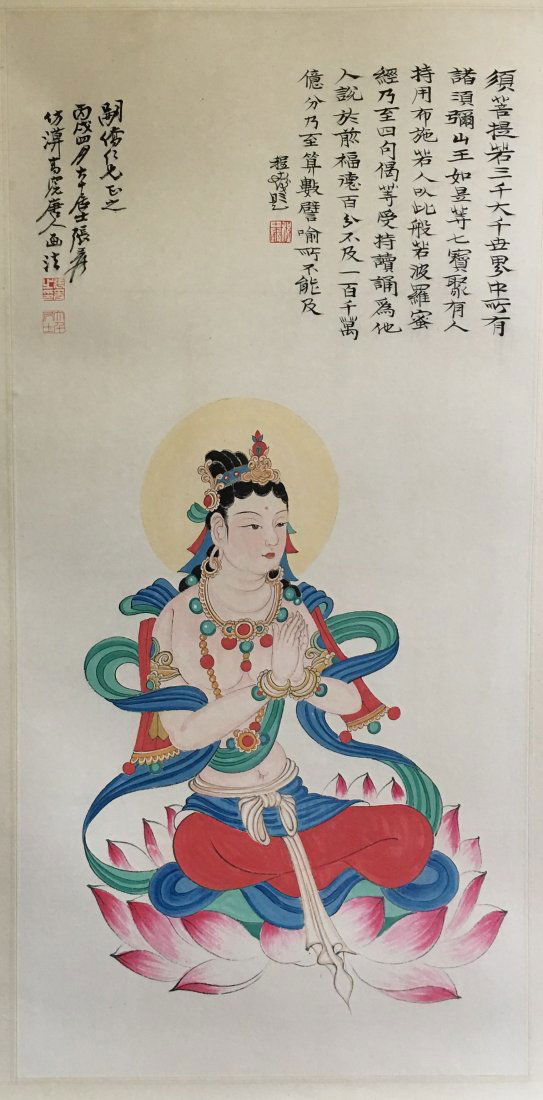 須菩提若三千大千世界中所有
諸須彌山王如是等七寶聚有人
持用布施若人以此般若波羅蜜
經乃至四句偈等受持讀誦為他
人說於前福德百分不及一百千萬
億分乃至算數譬喻所不能及
題
仁兄正之
丙戌四月大千居士張爰
仿漠高窟唐人画法